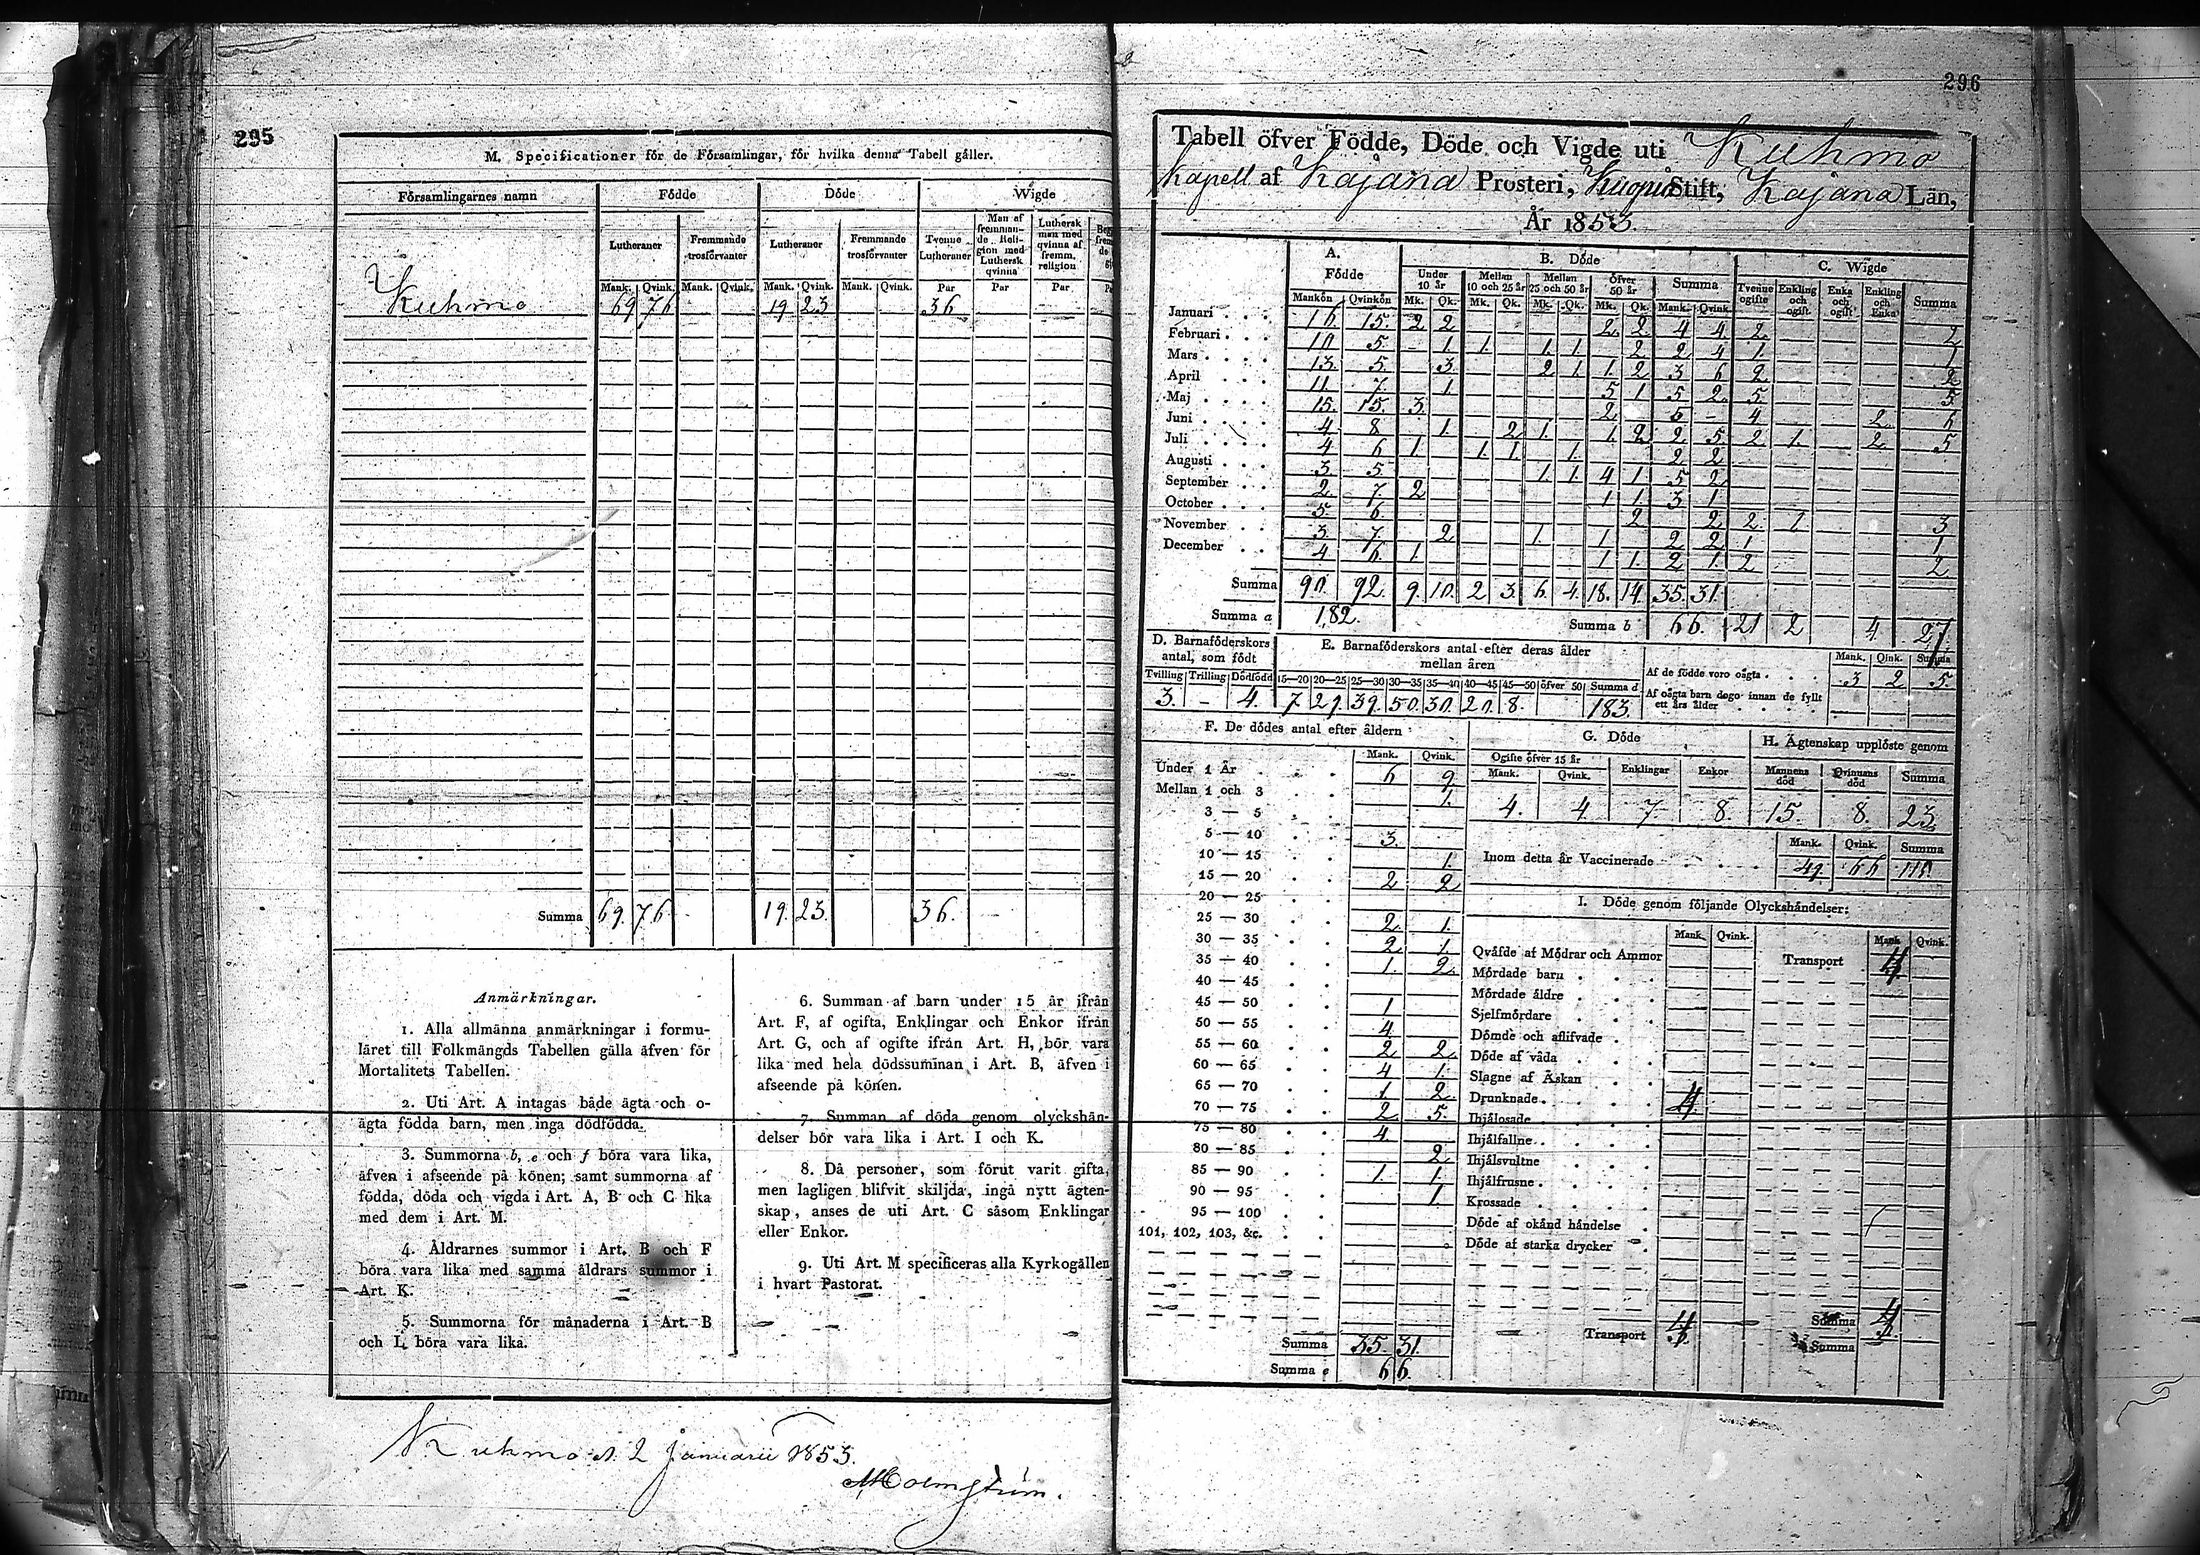 295
M. Specificationer för de Församlingar, för hvilka denna Tabell gäller.
Församlingarnes namn Födde Döde Wigde
Lutheraner Fremmande trosförvanter Lutheraner Fremmande trosförvanter Tvenne Lutheraner Man af fremmande Religion med Luthersk qvinna Luthersk man med qvinna af fremm. religion
Mank. Qvink. Mank. Qvink. Mank. Qvink. Mank. Qvink. Par Par Par
Kuhmo 69 76 19 23 36
Summa 69. 76. 19. 23. 36.
Anmärkningar.
1. Alla allmänna anmärkningar i formu-
läret till Folkmängds Tabellen gälla äfven för
Mortalitets Tabellen.
2. Uti Art. A intagas både ägta och o-
ägta födda barn, men inga dödfödda.
3. Summorna b, e och f böra vara lika,
äfven i afseende på könen; samt summorna af
födda, döda och vigda i Art. A, B och C lika
med dem i Art. M.
4. Åldrarnes summor i Art. B och F
böra vara lika med samma åldrars summor i
Art. K.
5. Summorna för månaderna i Art. B
och L böra vara lika.
6. Summan af barn under 15 år ifrån
Art. F, af ogifta, Enklingar och Enkor ifrån
Art. G, och af ogifte ifrån Art. H, bör vara
lika med hela dödssumman i Art. B, äfven i
afseende på könen.
7. Summan af döda genom olyckshän-
delser bör vara lika i Art. I och K.
8. Då personer, som förut varit gifta,
men lagligen blifvit skiljda, ingå nytt ägten-
skap, anses de uti Art. C såsom Enklingar
eller Enkor.
9. Uti Art. M specificeras alla Kyrkogällen
i hvart Pastorat.
Kuhmo d. 2 Januarii 1853.
Holmström.
296
Tabell öfver Födde, Döde och Vigde uti Kuhmo
Kapell af Kajana Prosteri, Kuopio Stift, Kajana Län,
År 1853.
A. Födde B. Döde C. Wigde
Under 10 år Mellan 10 och 25 år Mellan 25 och 50 år öfver 50 år Summa Tvenne ogifte Enkling och ogift Enka och ogift Enkling och Enka Summa
Mankön Qvinkön Mk. Qk. Mk. Qk. Mk. Qk. Mk. Qk. Mank. Qvink.
Januari 16. 15. 2 2 2. 2. 4 4 2. 2
Februari 10 5. - 1. 1. 1. 1. 2 2 4 1. 1
Mars 13. 5. 3. 2 1. 1. 2 3 6 2 2
April 11. 7. 1 5 1 5 2. 5. 5.
Maj 15. 15. 3. 2. 5 - 4 2. 6
Juni 4 8 1. 2 1. 1. 2 2 5. 2 1. 2 5
Juli 4 6 1. 1. 1. 1. 2 2
Augusti 3 5 1. 1. 4 1 5 2
September 2. 7. 2 1 1 3 1
October 5 6 2 2 2. 1 3
November 3. 7. 2 1. 1 2 2 1 1
December 4 6. 1. 1 1. 2 1. 2 2
Summa 90. 92. 9. 10. 2 3. 6. 4. 18. 14. 35. 31.
Summa a 182. Summa b 66. 21 2 4 27
D. Barnaföderskors antal, som födt
Tvilling Trilling Dödfödd
3. - 4.
E. Barnaföderskors antal efter deras ålder mellan åren
15—20 20—25 25—30 30—35 35—40 40—45 45—50 öfver 50 Summa d
7. 29. 39. 50. 30. 20. 8. 183.
Mank. Qink. Summa
Af de födde voro oägta 3 2 5.
Af oägta barn dogo innan de fyllt ett års ålder
F. De dödes antal efter åldern
Mank. Qvink.
Under 1 År 6 9.
Mellan 1 och 3 1.
3 — 5
5 — 10 3.
10 — 15 1.
15 — 20 2 2
20 — 25
25 — 30 2. 1.
30 — 35 2. 1.
35 — 40 1. 2.
40 — 45
45 — 50 1
50 — 55 4.
55 — 60 2 2.
60 — 65 4 1.
65 — 70 1. 2.
70 — 75 2 5.
75 — 80 4.
80 — 85 2
85 — 90 1. 1.
90 — 95 1.
95 — 100
101, 102, 103, &c.
Summa 35. 31.
Summa e 66.
G. Döde
Ogifte öfver 15 år Enklingar Enkor
Mank. Qvink.
4. 4 7. 8.
H. Ägtenskap upplöste genom
Mannens död Qvinnans död Summa
15. 8. 23.
Mank. Qvink. Summa
Inom detta år Vaccinerade 49. 66 115
I. Döde genom följande Olyckshändelser:
Mank. Qvink. Mank. Qvink.
Qväfde af Mödrar och Ammor Transport 4
Mördade barn
Mördade äldre
Sjelfmördare
Dömde och aflifvade
Döde af våda
Slagne af Åskan
Drunknade 4
Ihjälosade
Ihjälfallne
Ihjälsvultne
Ihjälfrusne
Krossade
Döde af okänd händelse
Döde af starka drycker
Transport 4 Summa 4
Summa